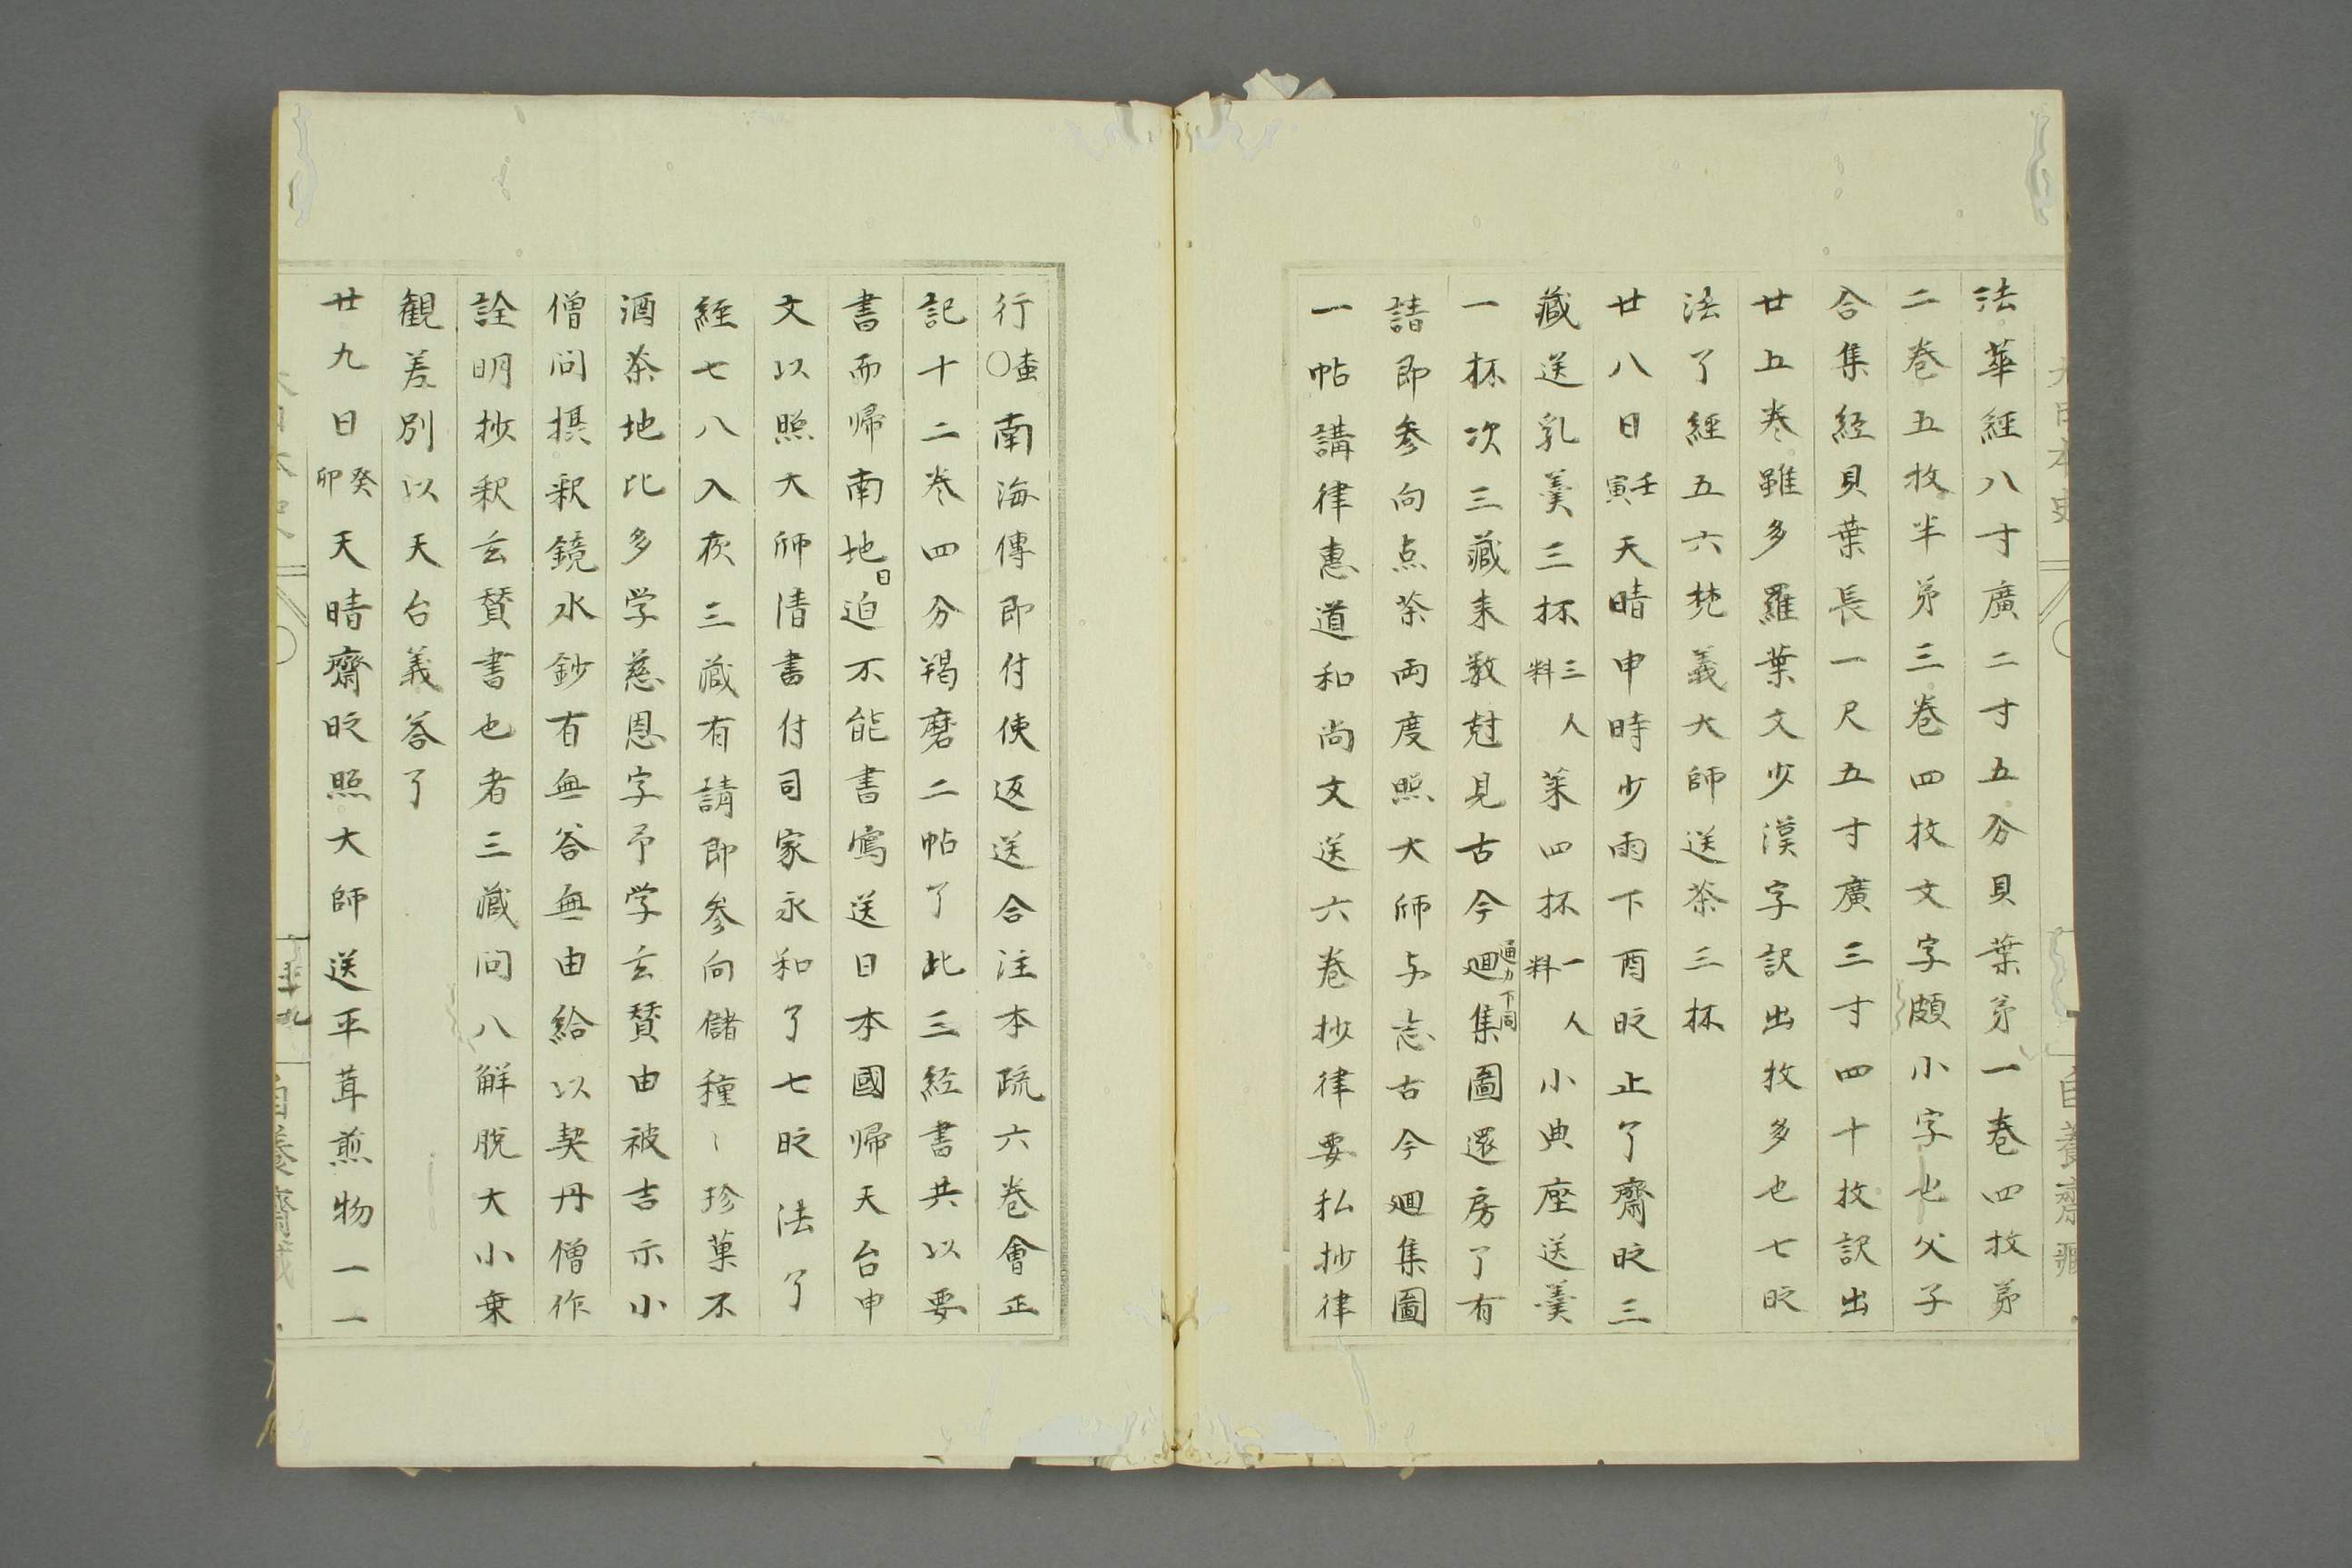 法華経八寸廣二寸五分貝葉弟一巻四枚弟
二巻五枚半弟三巻四枚文字頗小字也父子
合集経貝葉長一尺五寸廣三寸四十枚訳出
廿五巻雖多羅葉文少漢字訳出枚多也七時
法了経五六梵義大師送茶三杯
廿八日壬寅天晴申時少雨下酉時止了齋時三
藏送乳羹三杯三人料菓四杯一人料小典座送羹
一杯次三藏来教尅見古今廻集圖還房了有
請即参向点茶両度照大师与志古今廻集圖
一帖講律恵道和尚文送六巻抄律要私抄律
行○南海傳即付使返送合注本疏六巻會正
記十二巻四分羯磨二帖了此三経書共以要
書而帰南地日迫不能書寫送日本國帰天台申
文以照大师清書付司家永和了七時法了
経七八入夜三藏有請即参向儲種〻珍菓不
酒茶地比多学慈恩字予学玄賛由被吉示小
僧問摂釈鏡水鈔有無答無由給以契丹僧作
詮明抄釈玄賛書也者三藏問八解脱大小乗
観差別以天台義答了
廿九日癸卯天晴齋時照大師送平茸煎物一一
自養齋蔵